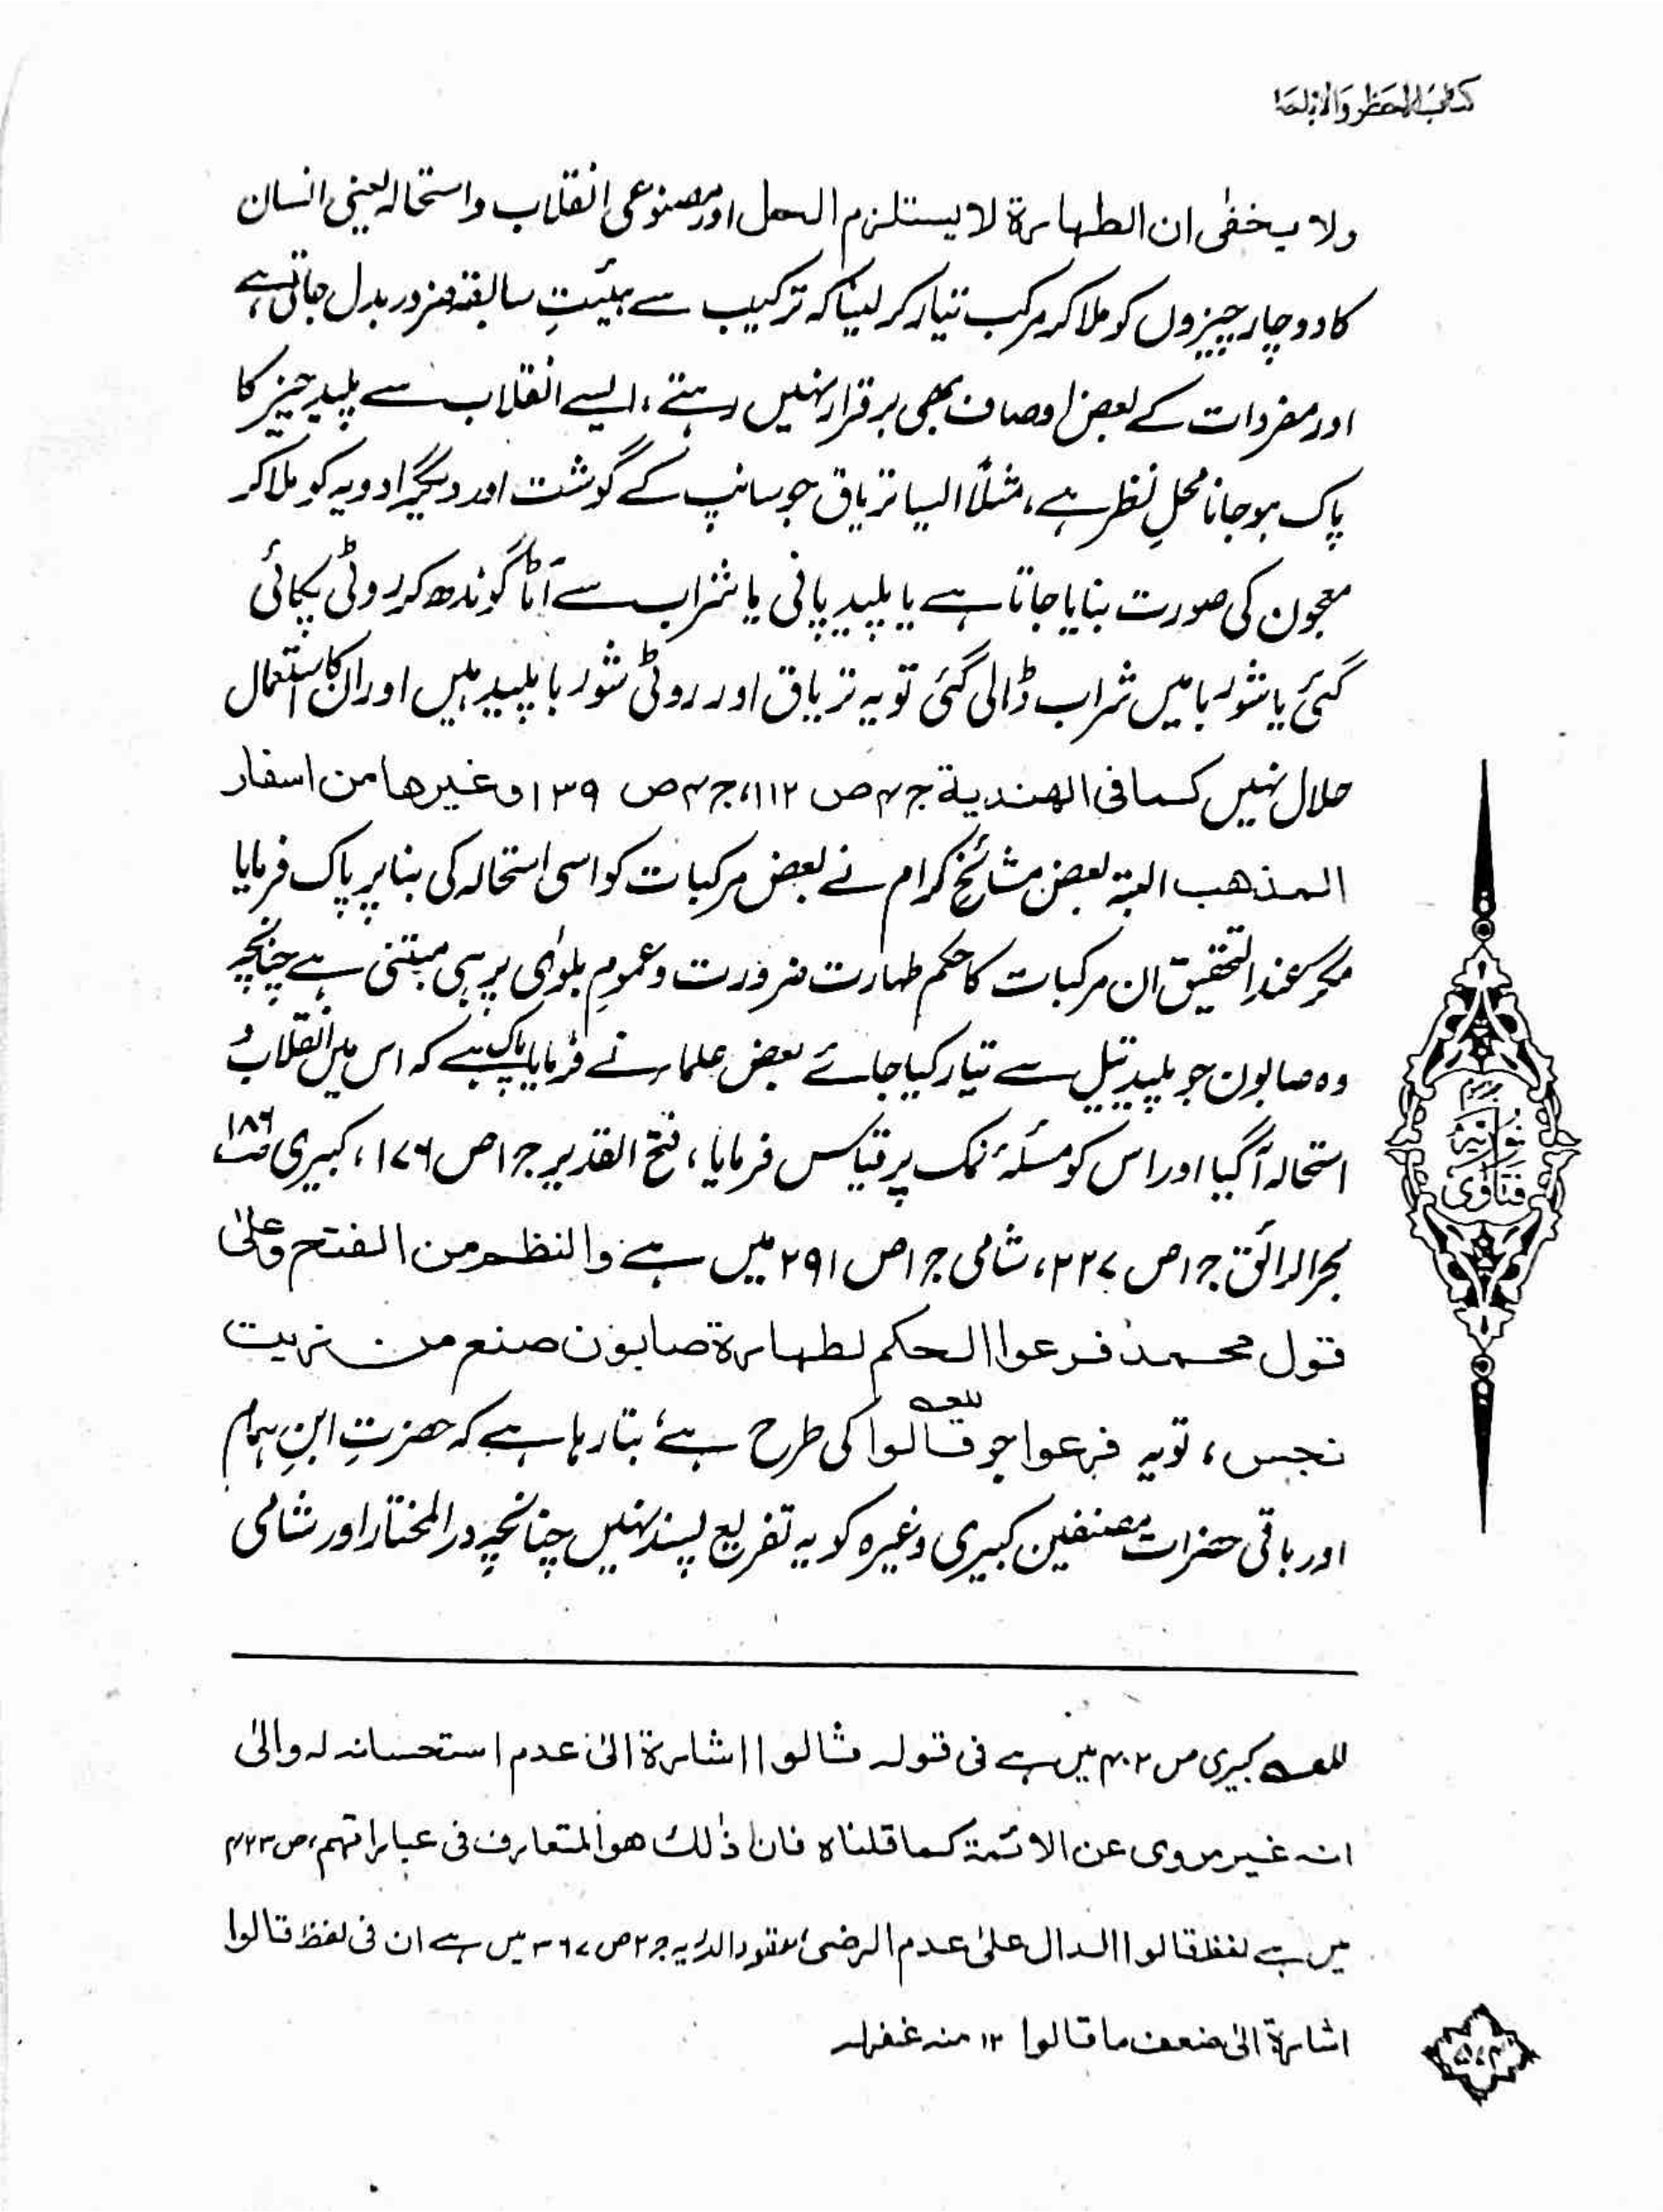 کتاب الحظر والاباحۃ
ولا یخفٰی ان الطہارۃ لا یستلزم الحل اور مصنوعی انقلاب و استحالہ یعنی انسان
کا دو چار چیزوں کو ملا کر مرکب تیار کر لینا کہ ترکیب سے ہیئتِ سابقہ ضرور بدل جاتی ہے
اور مفردات کے بعض اوصاف بھی برقرار نہیں رہتے، ایسے انقلاب سے پلید چیز کا
پاک ہو جانا محلِ نظر ہے، مثلاً ایسا تریاق جو سانپ کے گوشت اور دیگر ادویہ کو ملا کر
معجون کی صورت بنایا جاتا ہے یا پلید پانی یا شراب سے آٹا گوندھ کر روٹی پکائی
گئی یا شوربا میں شراب ڈالی گئی تو یہ تریاق اور روٹی شوربا پلید ہیں اور ان کا استعمال
حلال نہیں کما فی الھندیۃ ج ۴ ص ۱۱۲، ج ۴ ص ۱۳۹ وغیرھا من اسفار
المذھب البتہ بعض مشائخ کرام نے بعض مرکبات کو اسی استحالہ کی بنا پر پاک فرمایا
مگر عند التحقیق ان مرکبات کا حکم طہارت ضرورت و عمومِ بلوٰی پر ہی مبتنی ہے چنانچہ
وہ صابون جو پلید تیل سے تیار کیا جائے بعض علماء نے فرمایا پاک ہے کہ اس میں انقلاب و
استحالہ آگیا اور اس کو مسئلۂ نمک پر قیاس فرمایا، فتح القدیر ج ۱ ص ۱۷۶، کبیری ص ۱۸۶
بحر الرائق ج ۱ ص ۲۲۷، شامی ج ۱ ص ۲۹۱ میں ہے والنظم من الفتح وعلٰی
قول محمد فرعوا الحکم لطہارۃ صابون صنع من زیت
نجس، تو یہ فرعوا جو قالوا للعہ کی طرح ہے بتا رہا ہے کہ حضرتِ ابنِ ہمام
اور باقی حضرات مصنفین کبیری وغیرہ کو یہ تفریع پسند نہیں چنانچہ در المختار اور شامی
للعہ کبیری ص ۴۰۲ میں ہے فی قولہ قالوا اشارۃ الیٰ عدم استحسانہ لہ والیٰ
انہ غیر مروی عن الائمۃ کما قلناہ فان ذٰلک ھو المتعارف فی عباراتھم، ص ۴۲۳
میں ہے لفظ قالوا الدال علیٰ عدم الرضیٰ، عقود الدریہ ج ۲ ص ۳۶۷ میں ہے ان فی لفظ قالوا
اشارۃ الیٰ ضعف ما قالوا ۱۲ منہ غفرلہ
نوریہ
فتاوٰی